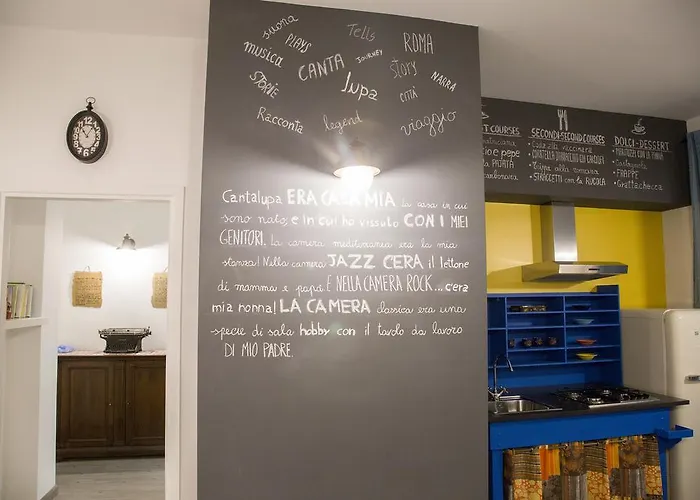 suona
Tells
musica
PLAYS
CANTA
JOURNEY
ROMA
STORY
STORIE
lupa
CITTÀ
NARRA
Racconta
legend
viaggio
Cantalupa ERA CASA MIA la casa in cui
sono nato, e in cui ho vissuto CON I MIEI
GENITORI. La camera mediterranea era la mia
stanza! Nella camera JAZZ C'ERA il lettone
di mamma e papà E NELLA CAMERA ROCK...c'era
mia nonna! LA CAMERA classica era una
specie di sala hobby con il tavolo da lavoro
DI MIO PADRE.
T COURSES
e pepe
PATATA
carbonara
SECONDI-SECOND COURSES
Coda alla vaccinara
Trippa alla romana
STRACCETTI con la RUCOLA
DOLCI-DESSERT
MARITOZZI CON LA PANNA
Castagnole
FRAPPE
Grattachecca